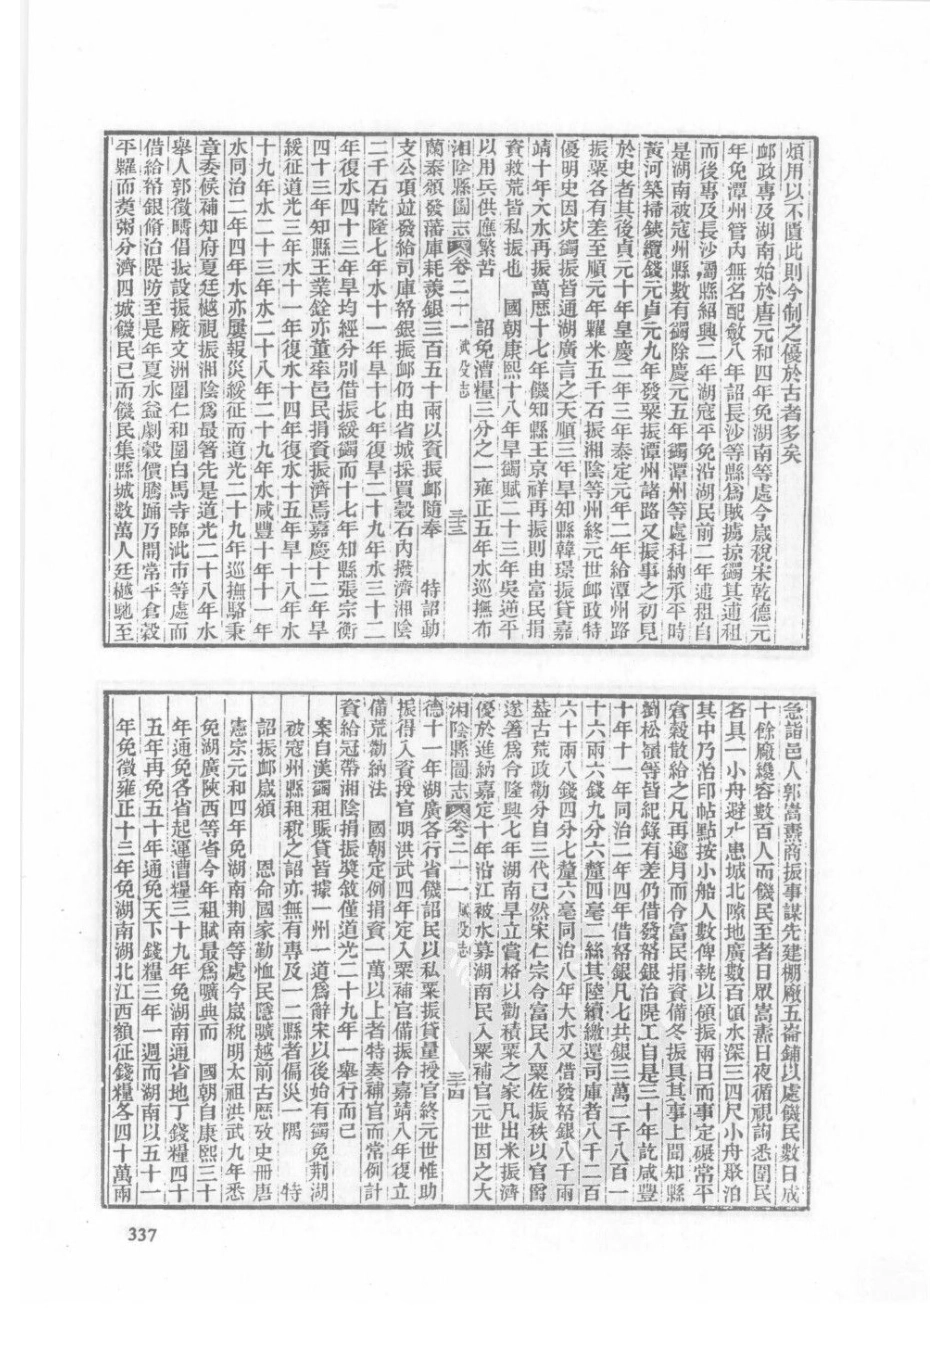 煩用以不匱此則今制之優於古者多矣
卹政專及湖南始於唐元和四年免湖南等處今歲稅宋乾德元
年免潭州管內無名配斂八年詔長沙等縣爲賊擄掠蠲其逋租
而後專及長沙瀏縣紹興二年湖寇平免沿湖民前二年逋租自
是湖南被寇州縣數有蠲除慶元五年蠲潭州等處科納承平時
黃河築掃鐵纜錢元貞元九年發粟振潭州諸路又振事之初見
於史者其後貞元十年皇慶二年三年泰定元年二年給潭州路
振粟各有差至順元年糶米五千石振湘陰等州終元世卹政特
優明史因災蠲振皆通湖廣言之天順三年旱知縣韓璟振貸嘉
靖十年大水再振萬歷十七年饑知縣王京祥再振則由富民捐
資救荒皆私振也 國朝康熙十八年旱蠲賦二十三年吳逆平
以用兵供應繁苦 詔免漕糧三分之一雍正五年水巡撫布
湘陰縣圖志 卷二十一 賦役志 三三
蘭泰頒發藩庫耗羨銀三百五十兩以資振卹隨奉 特詔動
支公項竝發給司庫帑銀振卹仍由省城採買穀石內撥濟湘陰
二千石乾隆七年水十一年旱十七年復旱二十九年水三十二
年復水四十三年旱均經分別借振緩蠲而十七年知縣張宗衡
四十三年知縣王業銓亦董率邑民捐資振濟焉嘉慶十二年旱
緩征道光三年水十一年復水十四年復水十五年旱十八年水
十九年水二十三年水二十八年二十九年水咸豐十年十一年
水同治二年四年水亦屢報災緩征而道光二十九年巡撫駱秉
章委候補知府夏廷樾視振湘陰爲最箸先是道光二十八年水
舉人郭徵疇倡振設振廠文洲圍仁和圍白馬寺臨泚市等處而
借給帑銀脩治隄防至是年夏水益劇穀價騰踊乃開常平倉穀
平糶而煑粥分濟四城饑民已而饑民集縣城數萬人廷樾馳至
急諧邑人郭嵩燾商振事謀先建棚廠五崙鋪以處饑民數日成
十餘廠纔容數百人而饑民至者日眾嵩燾日夜循視詢悉圍民
各具一小舟避水患城北隙地廣數百頃水深三四尺小舟聚泊
其中乃治印帖點按小船人數俾執以領振兩日而事定碾常平
倉穀散給之凡再逾月而令富民捐資備冬振具其事上聞知縣
劉松嶺等皆紀錄有差仍借發帑銀治隄工自是三十年訖咸豐
十年十一年同治二年四年借帑銀凡七共銀三萬二千八百一
十六兩六錢九分六釐四毫二絲其陸續繳還司庫者八千二百
六十兩八錢四分七釐六毫同治八年大水又借發帑銀八千兩
葢古荒政勸分自三代已然宋仁宗令富民入粟佐振秩以官爵
遂著爲令隆興七年湖南旱立賞格以勸積粟之家凡出米振濟
優於進納嘉定十年沿江被水募湖南民入粟補官元世因之大
湘陰縣圖志 卷二十一 賦役志 三四
德十一年湖廣各行省饑詔民以私粟振貸量授官終元世惟助
振得入資授官明洪武四年定入粟補官備振令嘉靖八年復立
備荒勸納法 國朝定例捐資一萬以上者特奏補官而常例計
資給冠帶湘陰捐振獎敘僅道光二十九年一舉行而已
案自漢蠲租賑貸皆據一州一道爲辭宋以後始有蠲免荆湖
被寇州縣租稅之詔亦無有專及一二縣者偏災一隅 特
詔振卹歲頒 恩命國家勤恤民隱曠越前古歷攷史冊唐
憲宗元和四年免湖南荆南等處今歲稅明太祖洪武九年悉
免湖廣陝西等省今年租賦最爲曠典而 國朝自康熙三十
年通免各省起運漕糧三十九年免湖南通省地丁錢糧四十
五年再免五十年通免天下錢糧三年一週而湖南以五十一
年免徵雍正十三年免湖南湖北江西額征錢糧各四十萬兩
337